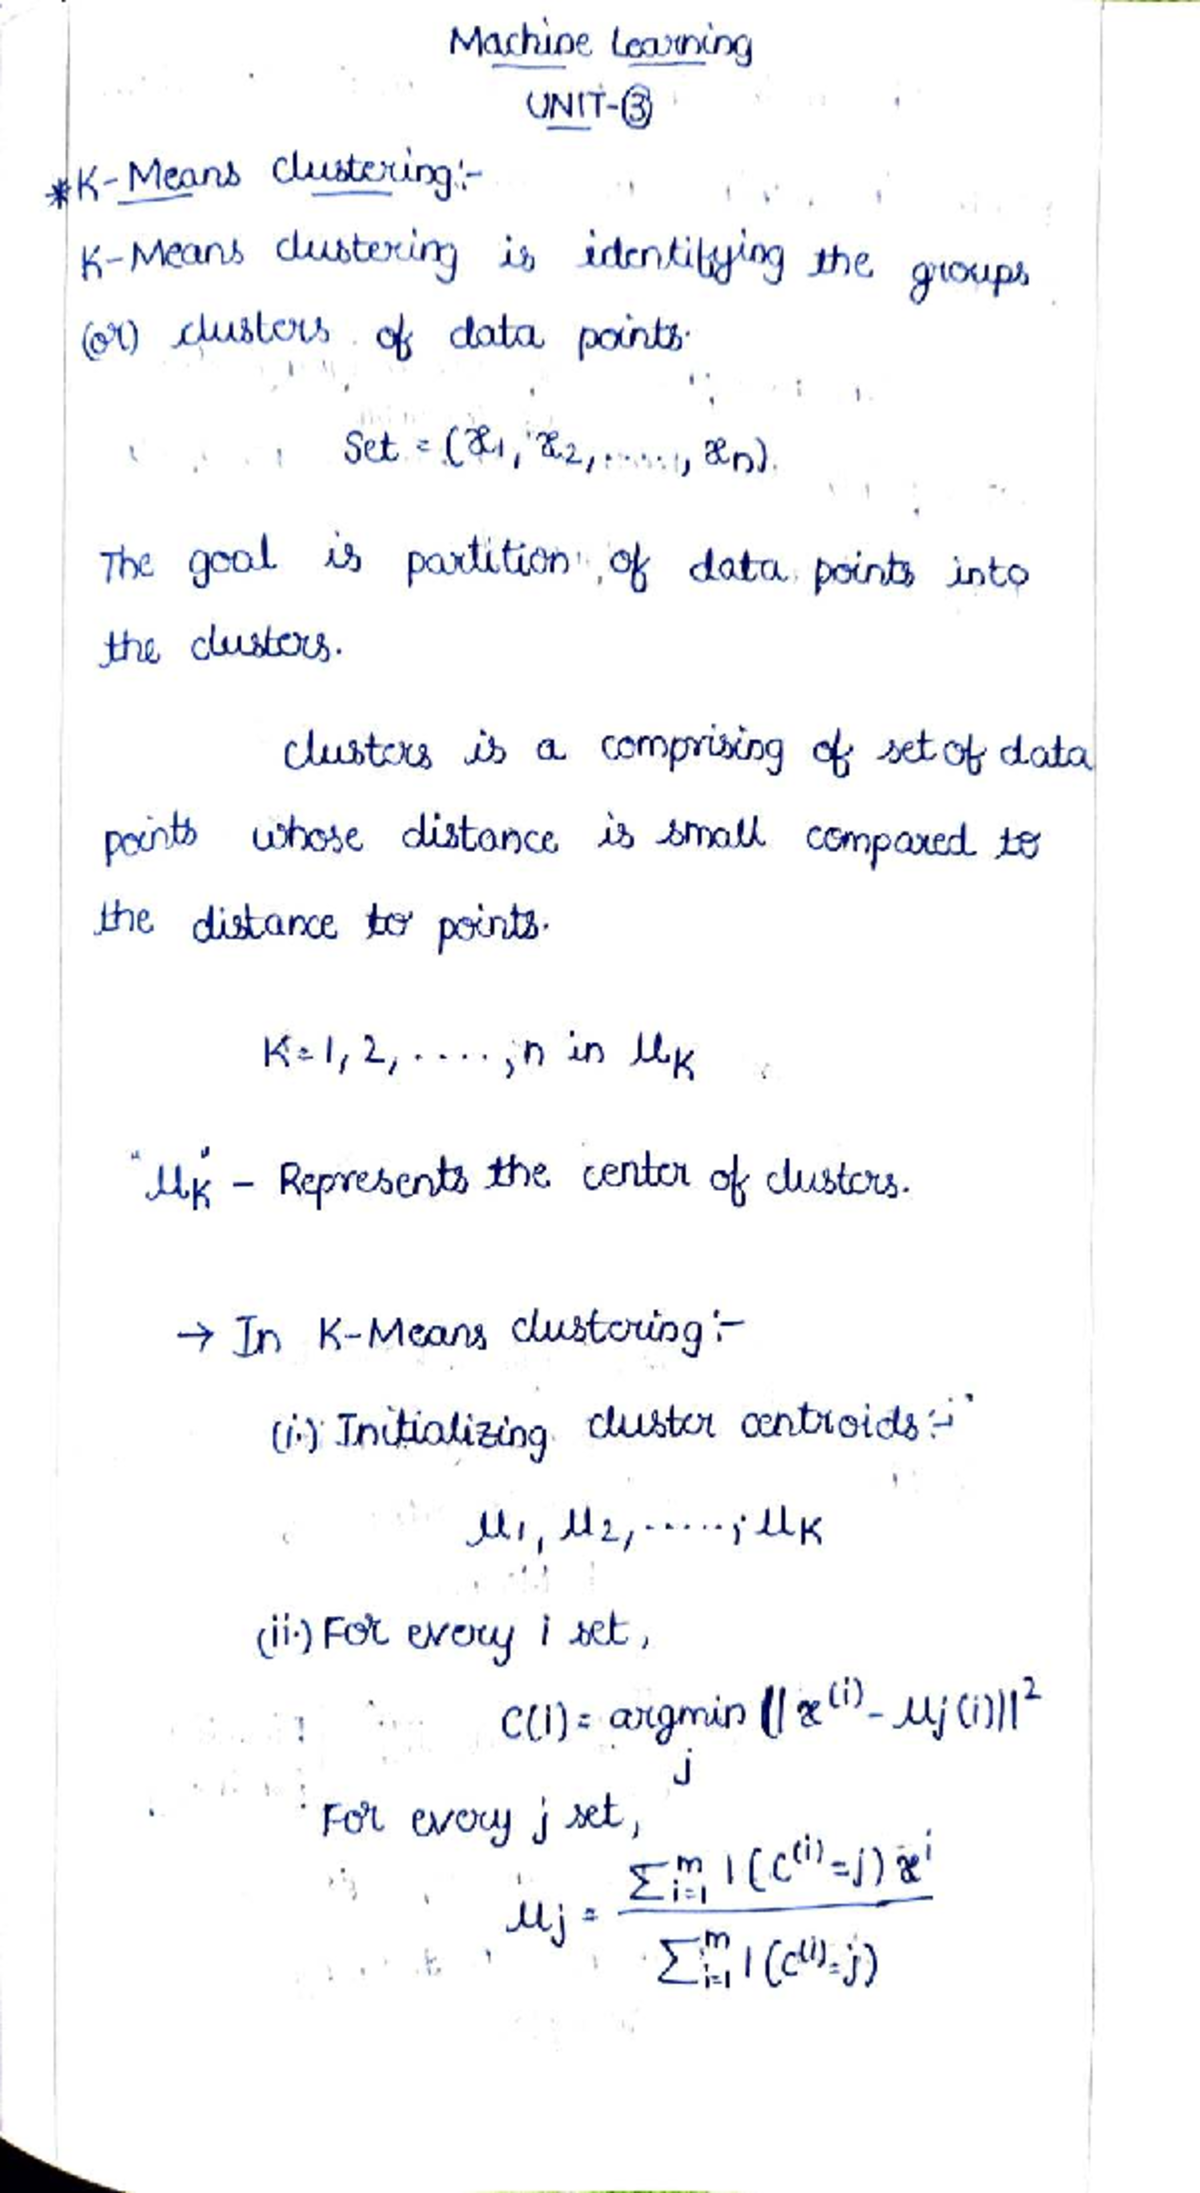 Machine Learning
UNIT-③
*K-Means clustering:-
K-Means clustering is identifying the groups
(or) clusters of data points.
Set = (x1, x2, ......, xn).
The goal is partition of data points into
the clusters.
clusters is a comprising of set of data
points whose distance is small compared to
the distance to points.
K=1, 2, ....,n in μK
"μK" - Represents the center of clusters.
→ In K-Means clustering:-
(i.) Initializing cluster centroids:-
μ1, μ2, ....., μK
(ii.) For every i set,
C(i) = argmin || x^(i) - μj(i)||^2
j
For every j set,
μj = Σ^m_i=1 1(C^(i)=j) x^i
Σ^m_i=1 1(C^(i)=j)